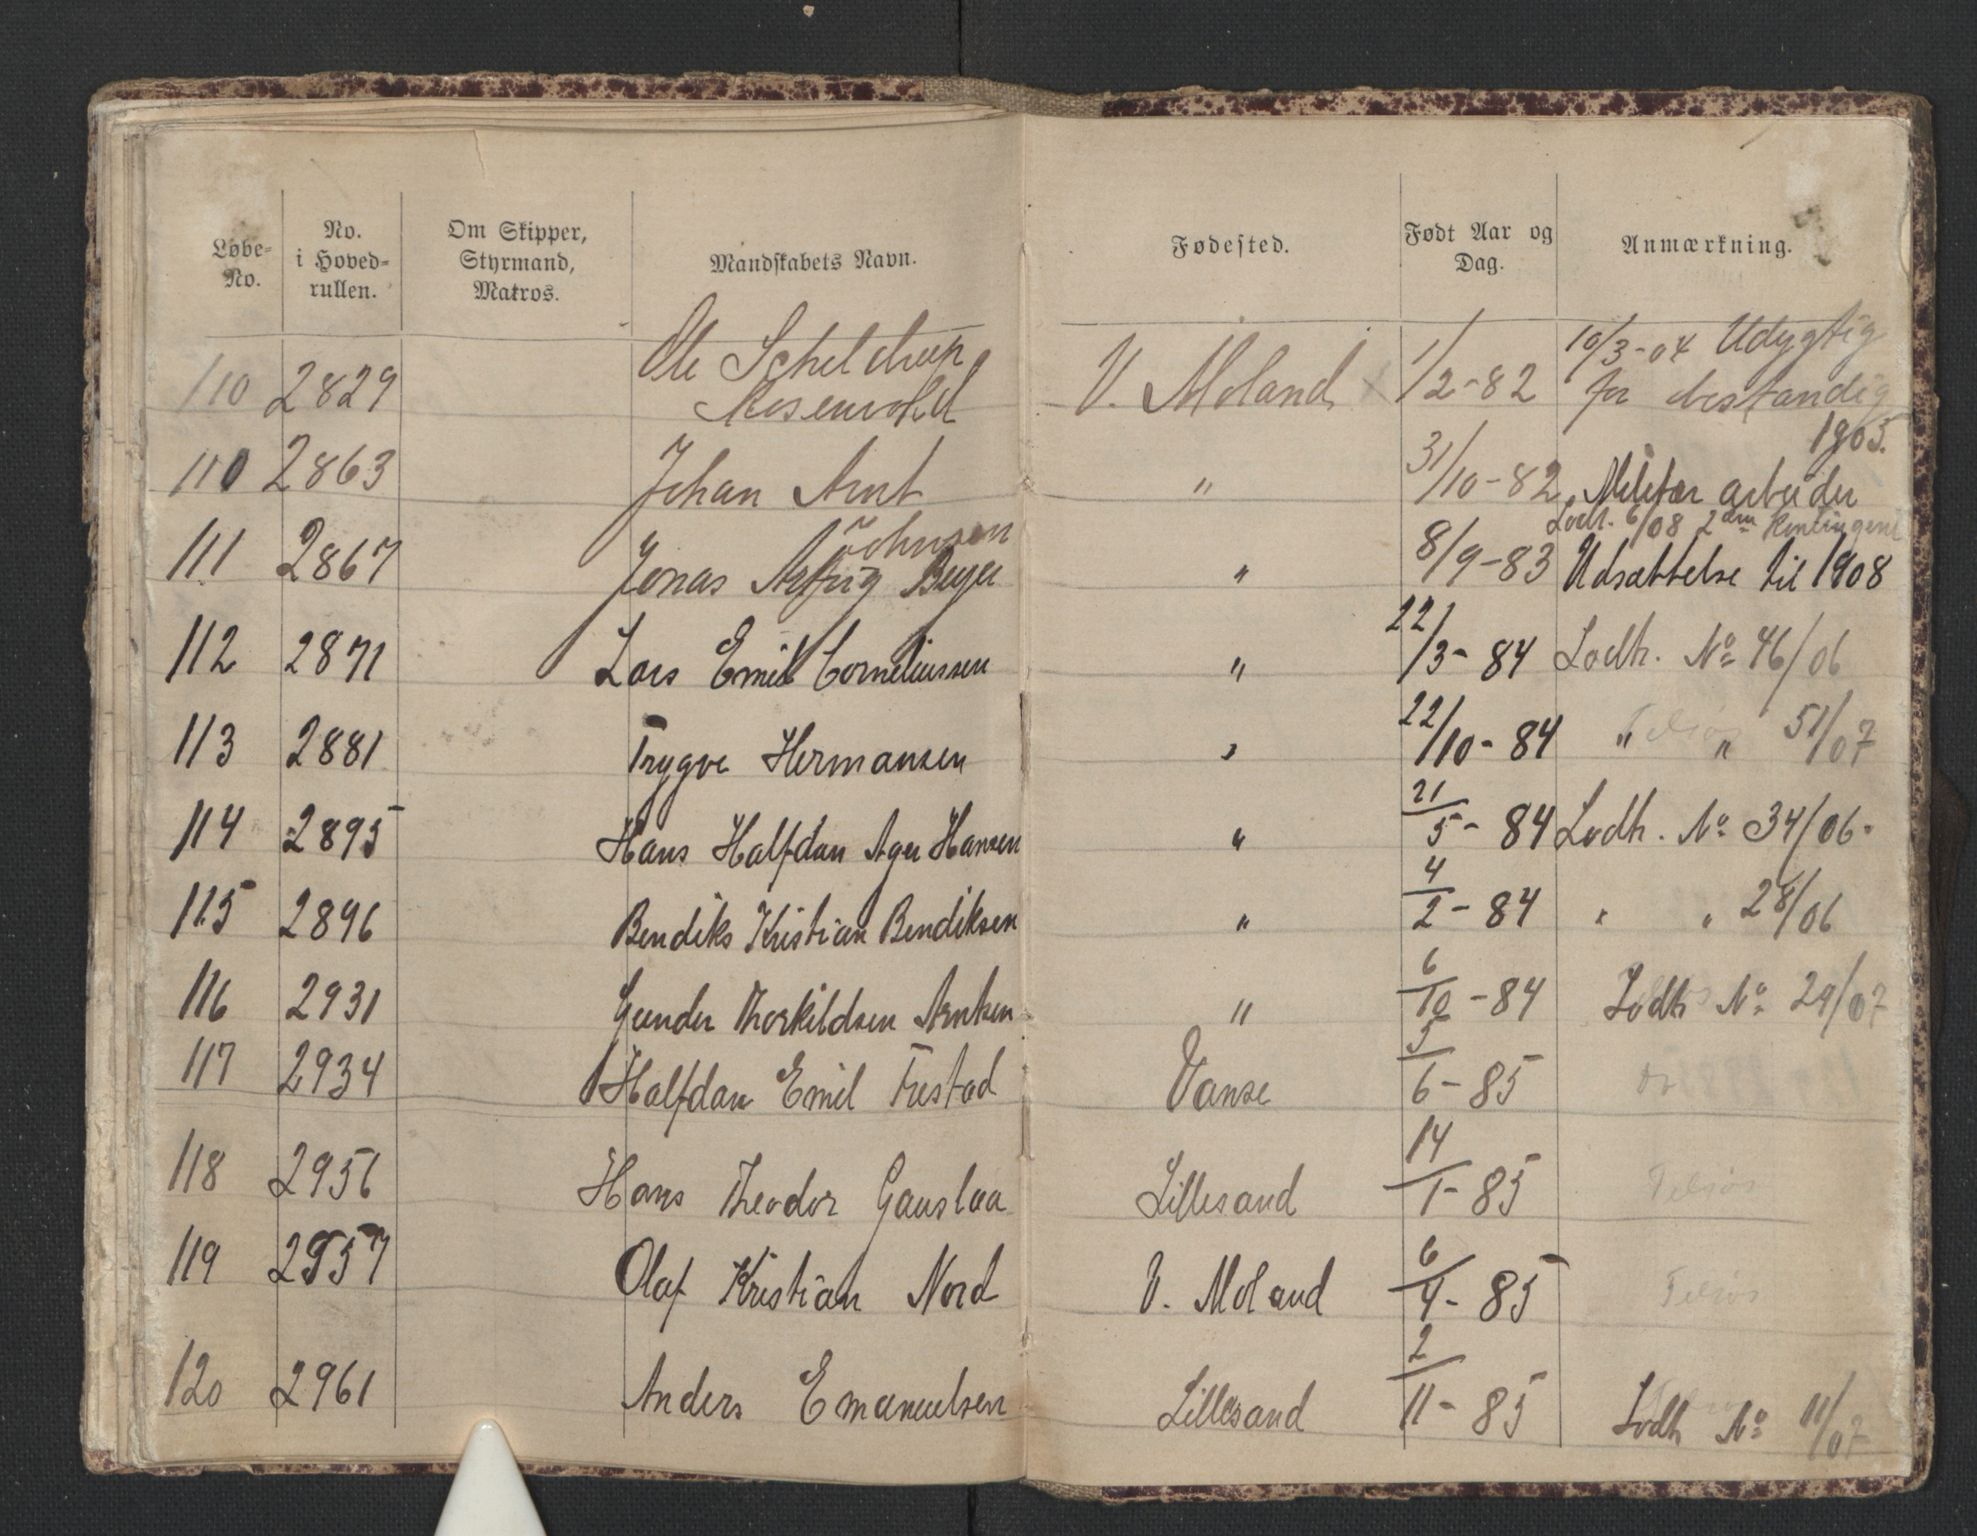 Løbe-No. No. i Hoved-rullen. Om Skipper, Styrmand, Matros. Mandskabets Navn. Fødested. Født Aar og Dag. Anmærkning.
110 2829 Ole Scheldrup Rosenvold V. Moland 1/2-82 10/3-04 Udygtig for bestandig
1905.
110 2863 Johan Arnt Johnsen " 31/10-82 Militær arbeider
Lodt. 6/08 2den Kontingent
111 2867 Jonas Beyer " 8/9-83 Udsættelse til 1908
112 2871 Lars Emil Corneliussen " 22/3-84 Lodtr. No 46/06
113 2881 Trygve Hermansen " 22/10-84 " " 51/07
114 2895 Hans Halfdan Ager Hansen " 21/5-84 Lodtr. No 34/06.
115 2896 Bendiks Kristian Bendiksen " 4/2-84 " " 28/06
116 2931 Gunder Thorkildsen Arntsen " 6/10-84 Lodtr No 29/07
117 2934 Halfdan Emil Frestad Vanse 5/6-85
118 2956 Hans Theodor Gauslaa Lillesand 14/1-85 Tilsjøs
119 2957 Olaf Kristian Nord V. Moland 6/4-85 Tilsjøs
120 2961 Anders Emanuelsen Lillesand 2/11-85 Lodtr No 11/07